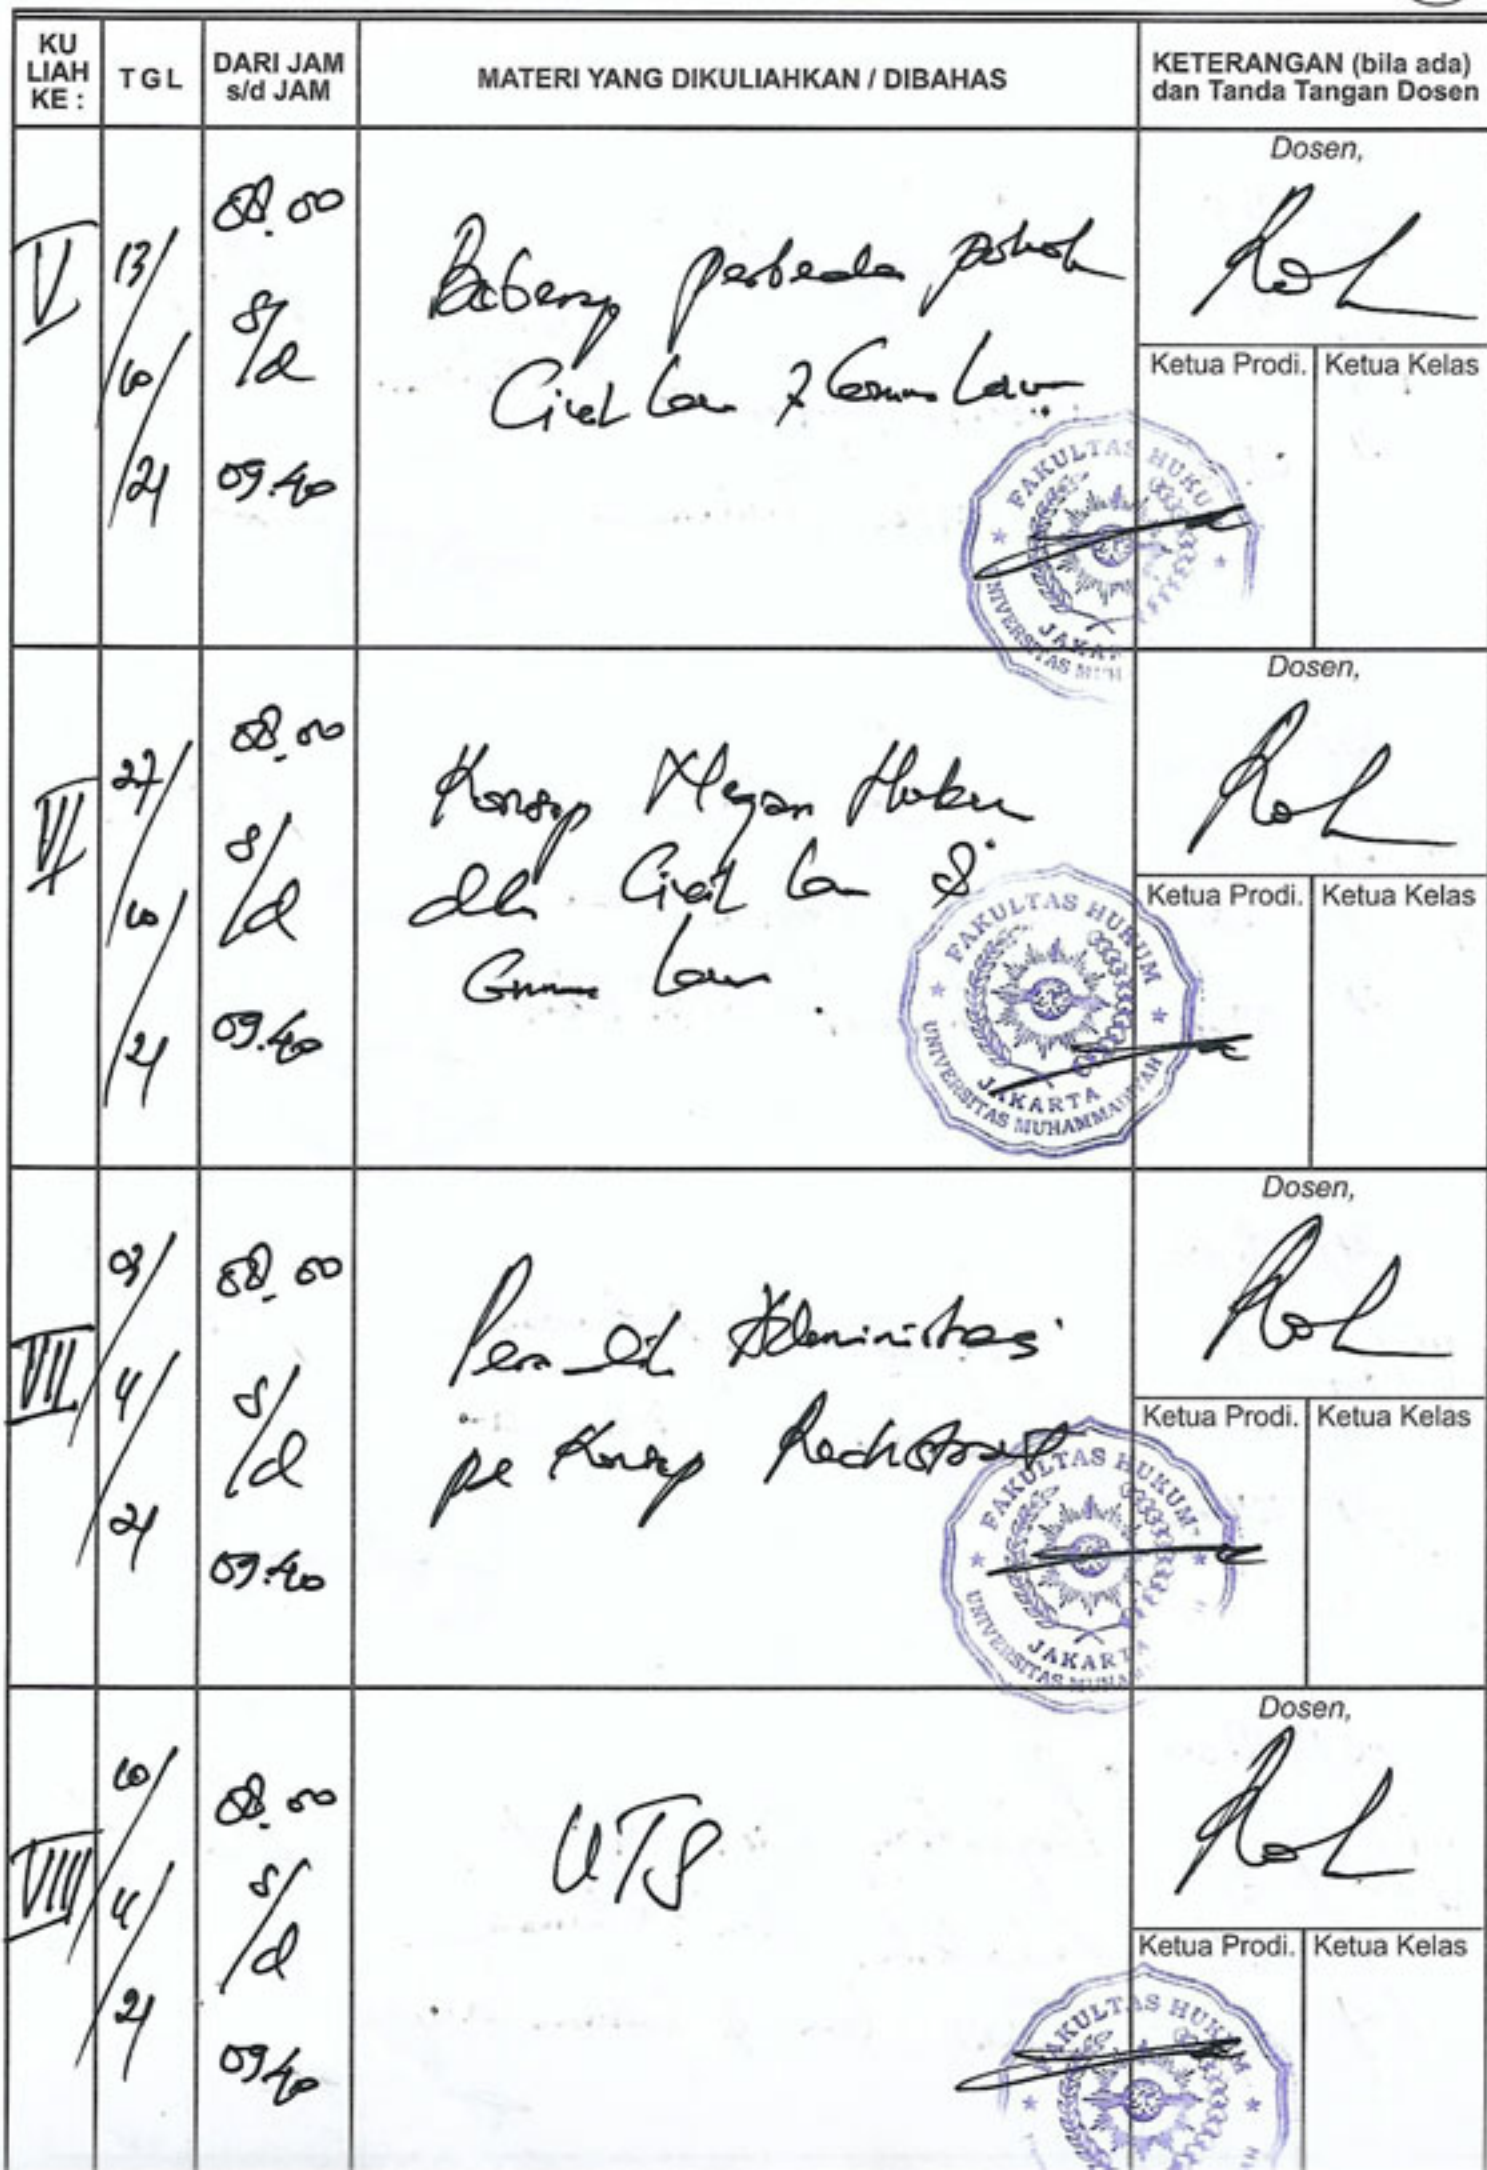 KU LIAH KE :
TGL
DARI JAM s/d JAM
MATERI YANG DIKULIAHKAN / DIBAHAS
KETERANGAN (bila ada) dan Tanda Tangan Dosen
V
13/10/21
08.00
s/d
09.40
pokok
Civil Law & Law
Dosen,
Ketua Prodi.
Ketua Kelas
FAKULTAS HUKU
JAKAR
VI
27/10/21
08.00
s/d
09.40
Konsep Negara Hukum
Civil Law &
Law
Dosen,
Ketua Prodi.
Ketua Kelas
FAKULTAS HUKUM
UNIVERSITAS MUHAMMADIYAH
JAKARTA
VII
03/11/21
08.00
s/d
09.40
Administrasi
Konsep Rechtstaat
Dosen,
Ketua Prodi.
Ketua Kelas
FAKULTAS HUKUM
UNIVERSITAS
JAKART
VIII
10/11/21
08.00
s/d
09.40
UTS
Dosen,
Ketua Prodi.
Ketua Kelas
FAKULTAS HUKUM